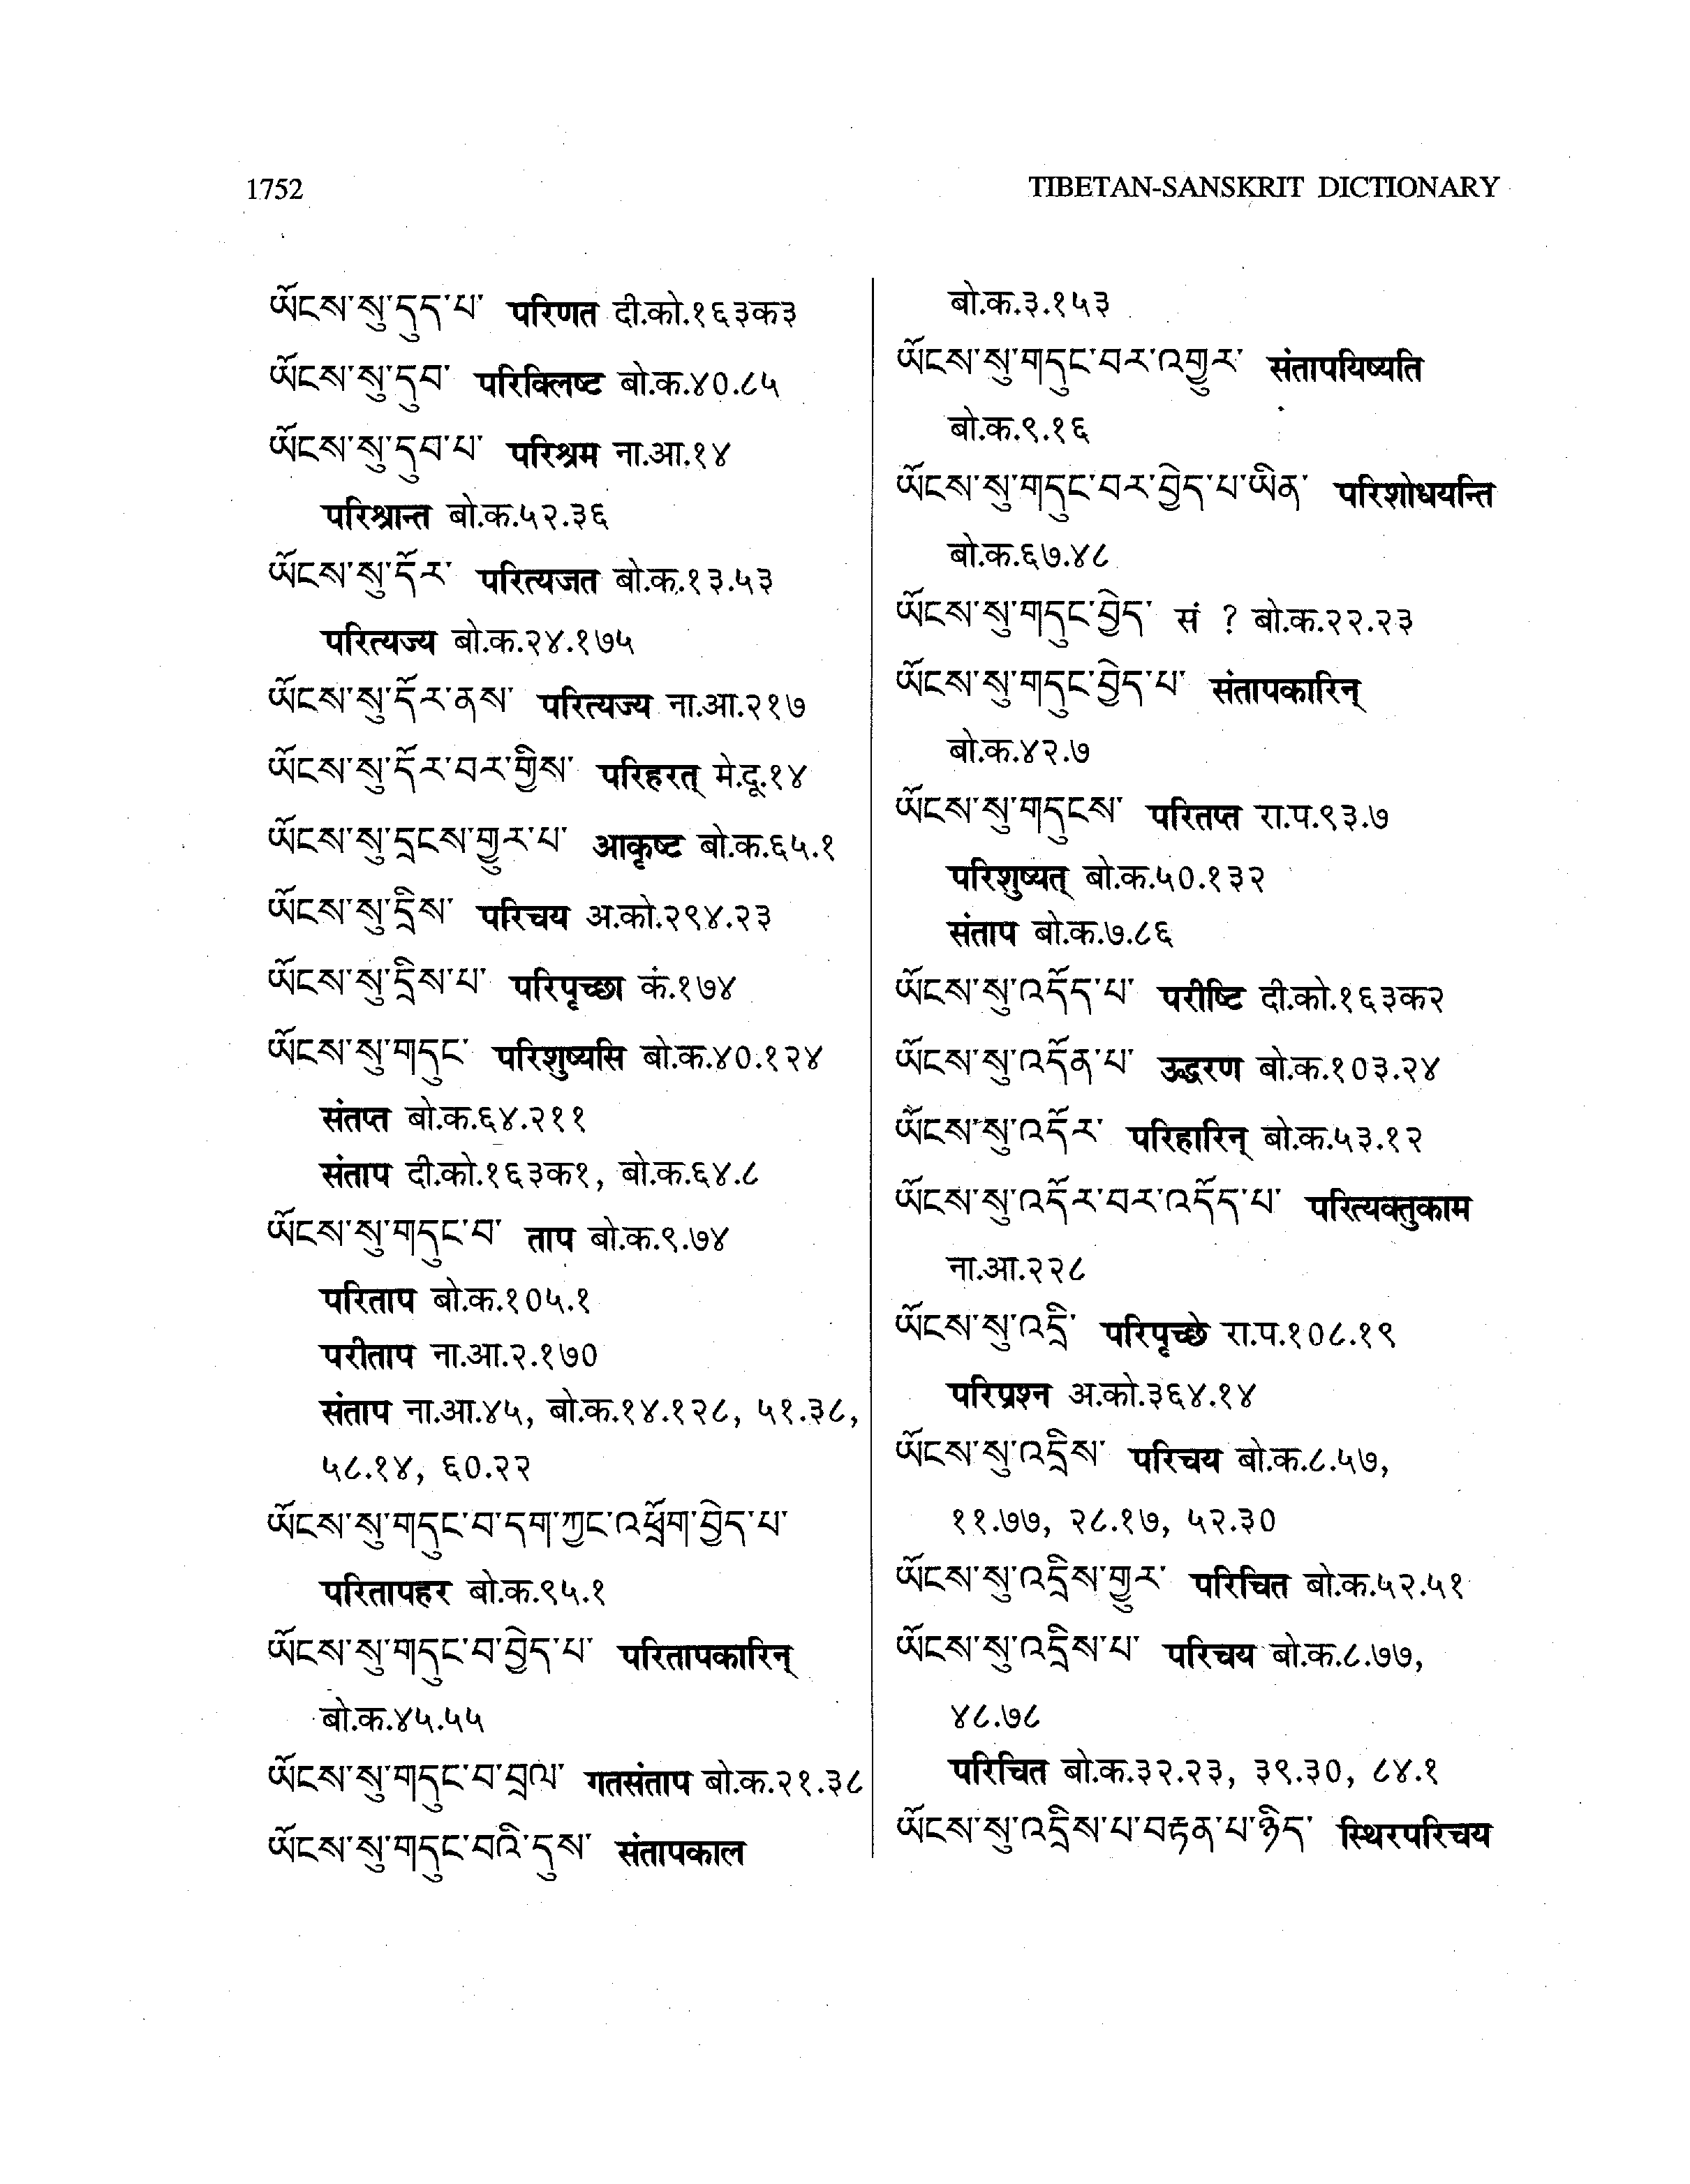 1752
TIBETAN-SANSKRIT DICTIONARY
ཡོངས་སུ་དུད་པ་ परिणत दी.को.१६३क३
ཡོངས་སུ་དུབ་ परिक्लिष्ट बो.क.४०.८५
ཡོངས་སུ་དུབ་པ་ परिश्रम ना.आ.१४
परिश्रान्त बो.क.५२.३६
ཡོངས་སུ་དོར་ परित्यजत बो.क.१३.५३
परित्यज्य बो.क.२४.१७५
ཡོངས་སུ་དོར་ནས་ परित्यज्य ना.आ.२१७
ཡོངས་སུ་དོར་བར་གྱིས་ परिहरत् मे.दू.१४
ཡོངས་སུ་དྲངས་གྱུར་པ་ आकृष्ट बो.क.६५.१
ཡོངས་སུ་དྲིས་ परिचय अ.को.२९४.२३
ཡོངས་སུ་དྲིས་པ་ परिपृच्छा कं.१७४
ཡོངས་སུ་གདུང་ परिशुष्यसि बो.क.४०.१२४
संतप्त बो.क.६४.२११
संताप दी.को.१६३क१, बो.क.६४.८
ཡོངས་སུ་གདུང་བ་ ताप बो.क.९.७४
परिताप बो.क.१०५.१
परीताप ना.आ.२.१७०
संताप ना.आ.४५, बो.क.१४.१२८, ५१.३८,
५८.१४, ६०.२२
ཡོངས་སུ་གདུང་བ་དག་ཀྱང་འཕྲོག་བྱེད་པ་
परितापहर बो.क.९५.१
ཡོངས་སུ་གདུང་བ་བྱེད་པ་ परितापकारिन्
बो.क.४५.५५
ཡོངས་སུ་གདུང་བ་བྲལ་ गतसंताप बो.क.२१.३८
ཡོངས་སུ་གདུང་བའི་དུས་ संतापकाल
बो.क.३.१५३
ཡོངས་སུ་གདུང་བར་འགྱུར་ संतापयिष्यति
बो.क.९.१६
ཡོངས་སུ་གདུང་བར་བྱེད་པ་ཡིན་ परिशोधयन्ति
बो.क.६७.४८
ཡོངས་སུ་གདུང་བྱེད་ सं ? बो.क.२२.२३
ཡོངས་སུ་གདུང་བྱེད་པ་ संतापकारिन्
बो.क.४२.७
ཡོངས་སུ་གདུངས་ परितप्त रा.प.९३.७
परिशुष्यत् बो.क.५०.१३२
संताप बो.क.७.८६
ཡོངས་སུ་འདོད་པ་ परीष्टि दी.को.१६३क२
ཡོངས་སུ་འདོན་པ་ उद्धरण बो.क.१०३.२४
ཡོངས་སུ་འདོར་ परिहारिन् बो.क.५३.१२
ཡོངས་སུ་འདོར་བར་འདོད་པ་ परित्यक्तुकाम
ना.आ.२२८
ཡོངས་སུ་འདྲི་ परिपृच्छे रा.प.१०८.१९
परिप्रश्न अ.को.३६४.१४
ཡོངས་སུ་འདྲིས་ परिचय बो.क.८.५७,
११.७७, २८.१७, ५२.३०
ཡོངས་སུ་འདྲིས་གྱུར་ परिचित बो.क.५२.५१
ཡོངས་སུ་འདྲིས་པ་ परिचय बो.क.८.७७,
४८.७८
परिचित बो.क.३२.२३, ३९.३०, ८४.१
ཡོངས་སུ་འདྲིས་པ་བརྟན་པ་ཉིད་ स्थिरपरिचय